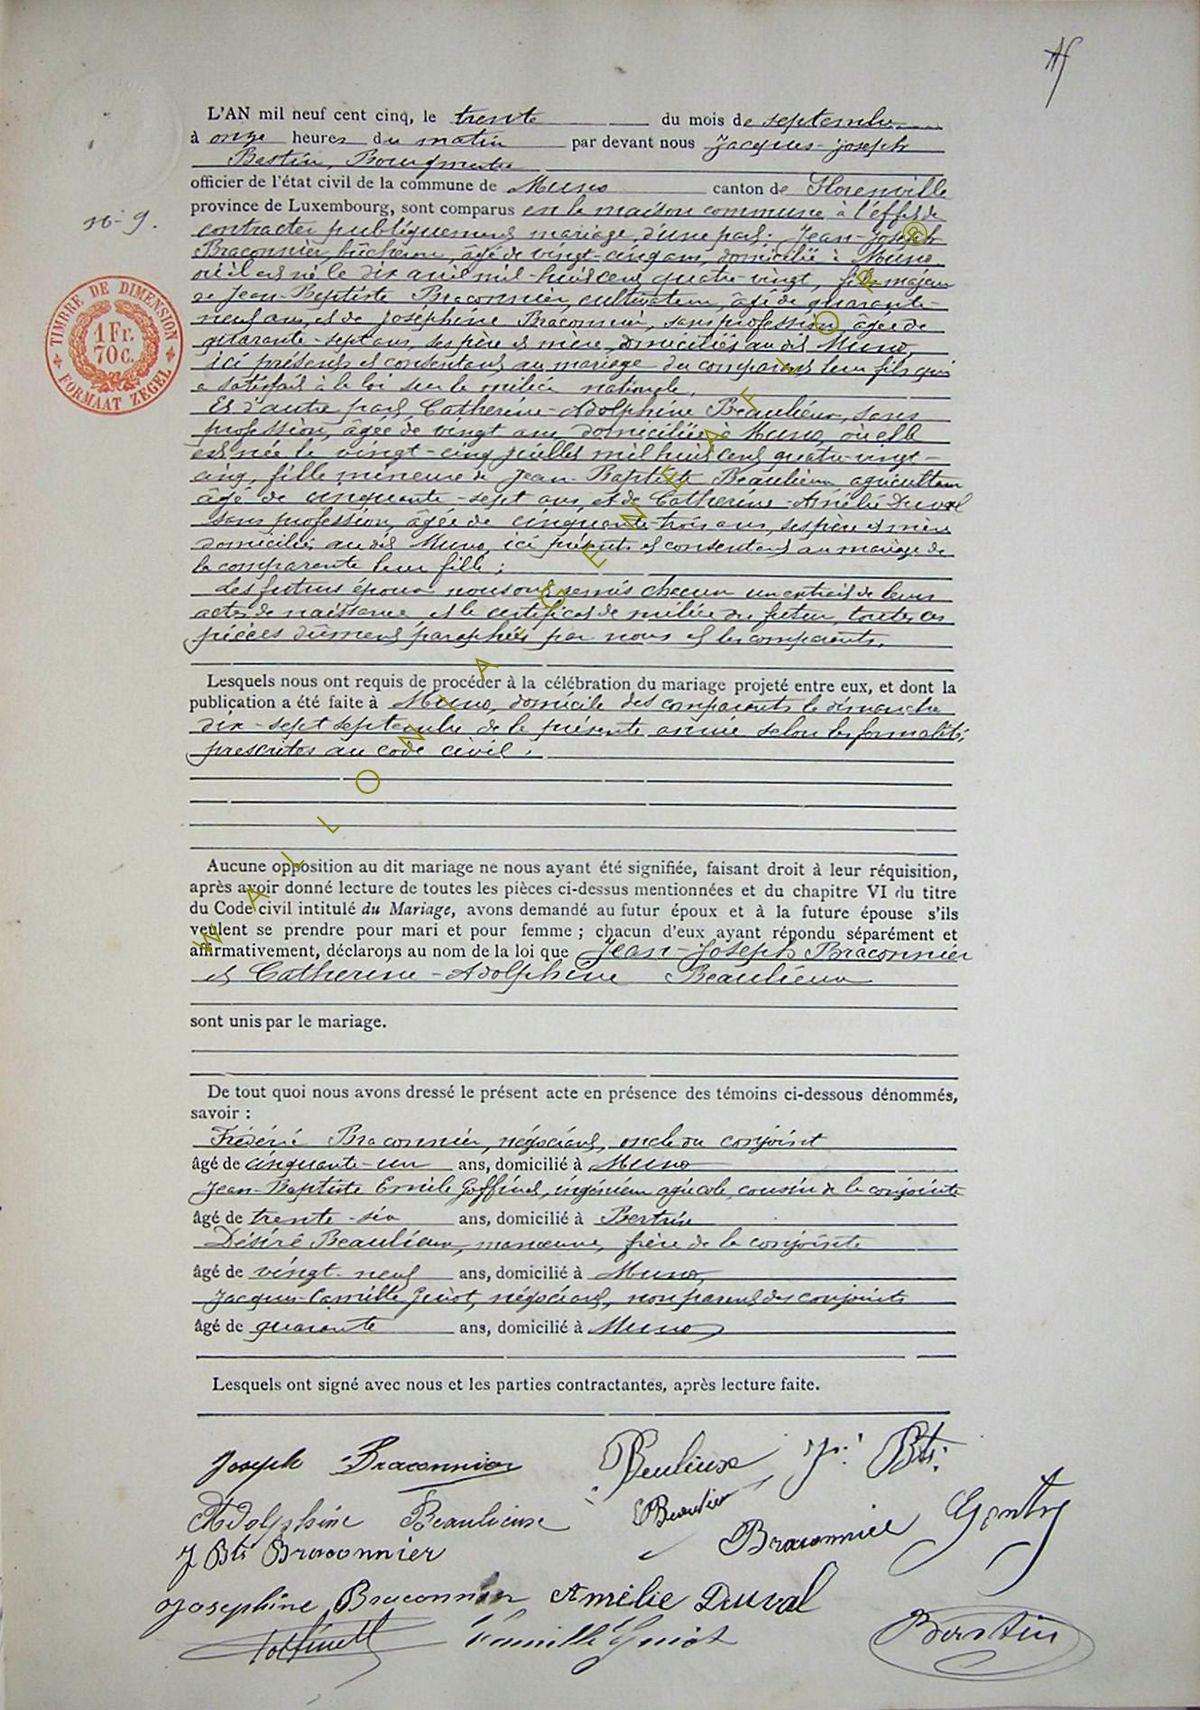 L'AN mil neuf cent cinq, le trente du mois de septembre
à onze heures du matin par devant nous Jacques-Joseph
Bastin, Bourgmestre
officier de l'état civil de la commune de Muno canton de Florenville
province de Luxembourg, sont comparus en la maison commune, à l'effet de
N° 9.
contracter publiquement mariage, d'une part: Jean-Joseph
Braconnier, bûcheron, âgé de vingt-cinq ans, domicilié à Muno
où il est né le dix avril mil-huit cent quatre-vingt, fils majeur
de Jean-Baptiste Braconnier, cultivateur, âgé de quarante-
neuf ans, et de Joséphine Braconnier, sans profession, âgée de
quarante-sept ans, ses père et mère, domiciliés au dit Muno,
ici présents et consentant au mariage du comparant leur fils qui
a satisfait à la loi sur la milice nationale.
Et d'autre part, Catherine-Adolphine Beaulieux, sans
profession, âgée de vingt ans domiciliée à Muno, où elle
est née le vingt-cinq juillet mil huit cent quatre-vingt-
cinq, fille mineure de Jean-Baptiste Beaulieux agriculteur
âgé de cinquante-sept ans, et de Catherine-Amélie Duval
sans profession, âgée de cinquante-trois ans, ses père et mère
domiciliés au dit Muno, ici présents et consentant au mariage de
la comparante leur fille;
Les futurs époux nous ont remis chacun un extrait de leurs
actes de naissance et le certificat de milice du futur, toutes ces
pièces dûment paraphées par nous et les comparants.
Lesquels nous ont requis de procéder à la célébration du mariage projeté entre eux, et dont la
publication a été faite à Muno, domicile des comparants le dimanche
dix-sept septembre de la présente année selon les formalités
prescrites au code civil.
Aucune opposition au dit mariage ne nous ayant été signifiée, faisant droit à leur réquisition,
après avoir donné lecture de toutes les pièces ci-dessus mentionnées et du chapitre VI du titre
du Code civil intitulé du Mariage, avons demandé au futur époux et à la future épouse s'ils
veulent se prendre pour mari et pour femme ; chacun d'eux ayant répondu séparément et
affirmativement, déclarons au nom de la loi que Jean-Joseph Braconnier
et Catherine-Adolphine Beaulieux
sont unis par le mariage.
De tout quoi nous avons dressé le présent acte en présence des témoins ci-dessous dénommés,
savoir :
Frédéric Braconnier, négociant, oncle du conjoint
âgé de cinquante-un ans, domicilié à Muno
Jean-Baptiste Emile Goffinet, ingénieur agricole cousin de la conjointe
âgé de trente-six ans, domicilié à Bertrix
Désiré Beaulieux, manœuvre, frère de la conjointe
âgé de vingt-neuf ans, domicilié à Muno,
Jacques-Camille Guiot, négociant, non parent des conjoints
âgé de quarante ans, domicilié à Muno
Lesquels ont signé avec nous et les parties contractantes, après lecture faite.
Joseph Braconnier Beulieux Jn. Bte.
Adolphine Beaulieuse Beaulieux
J Bte Braconnier Braconnier
Joséphine Braconnier Amélie Duval
Goffinet Camille Guiot Bastin
TIMBRE DE DIMENSION
1 Fr. 70 c.
FORMAAT ZEGEL
WALLONIA